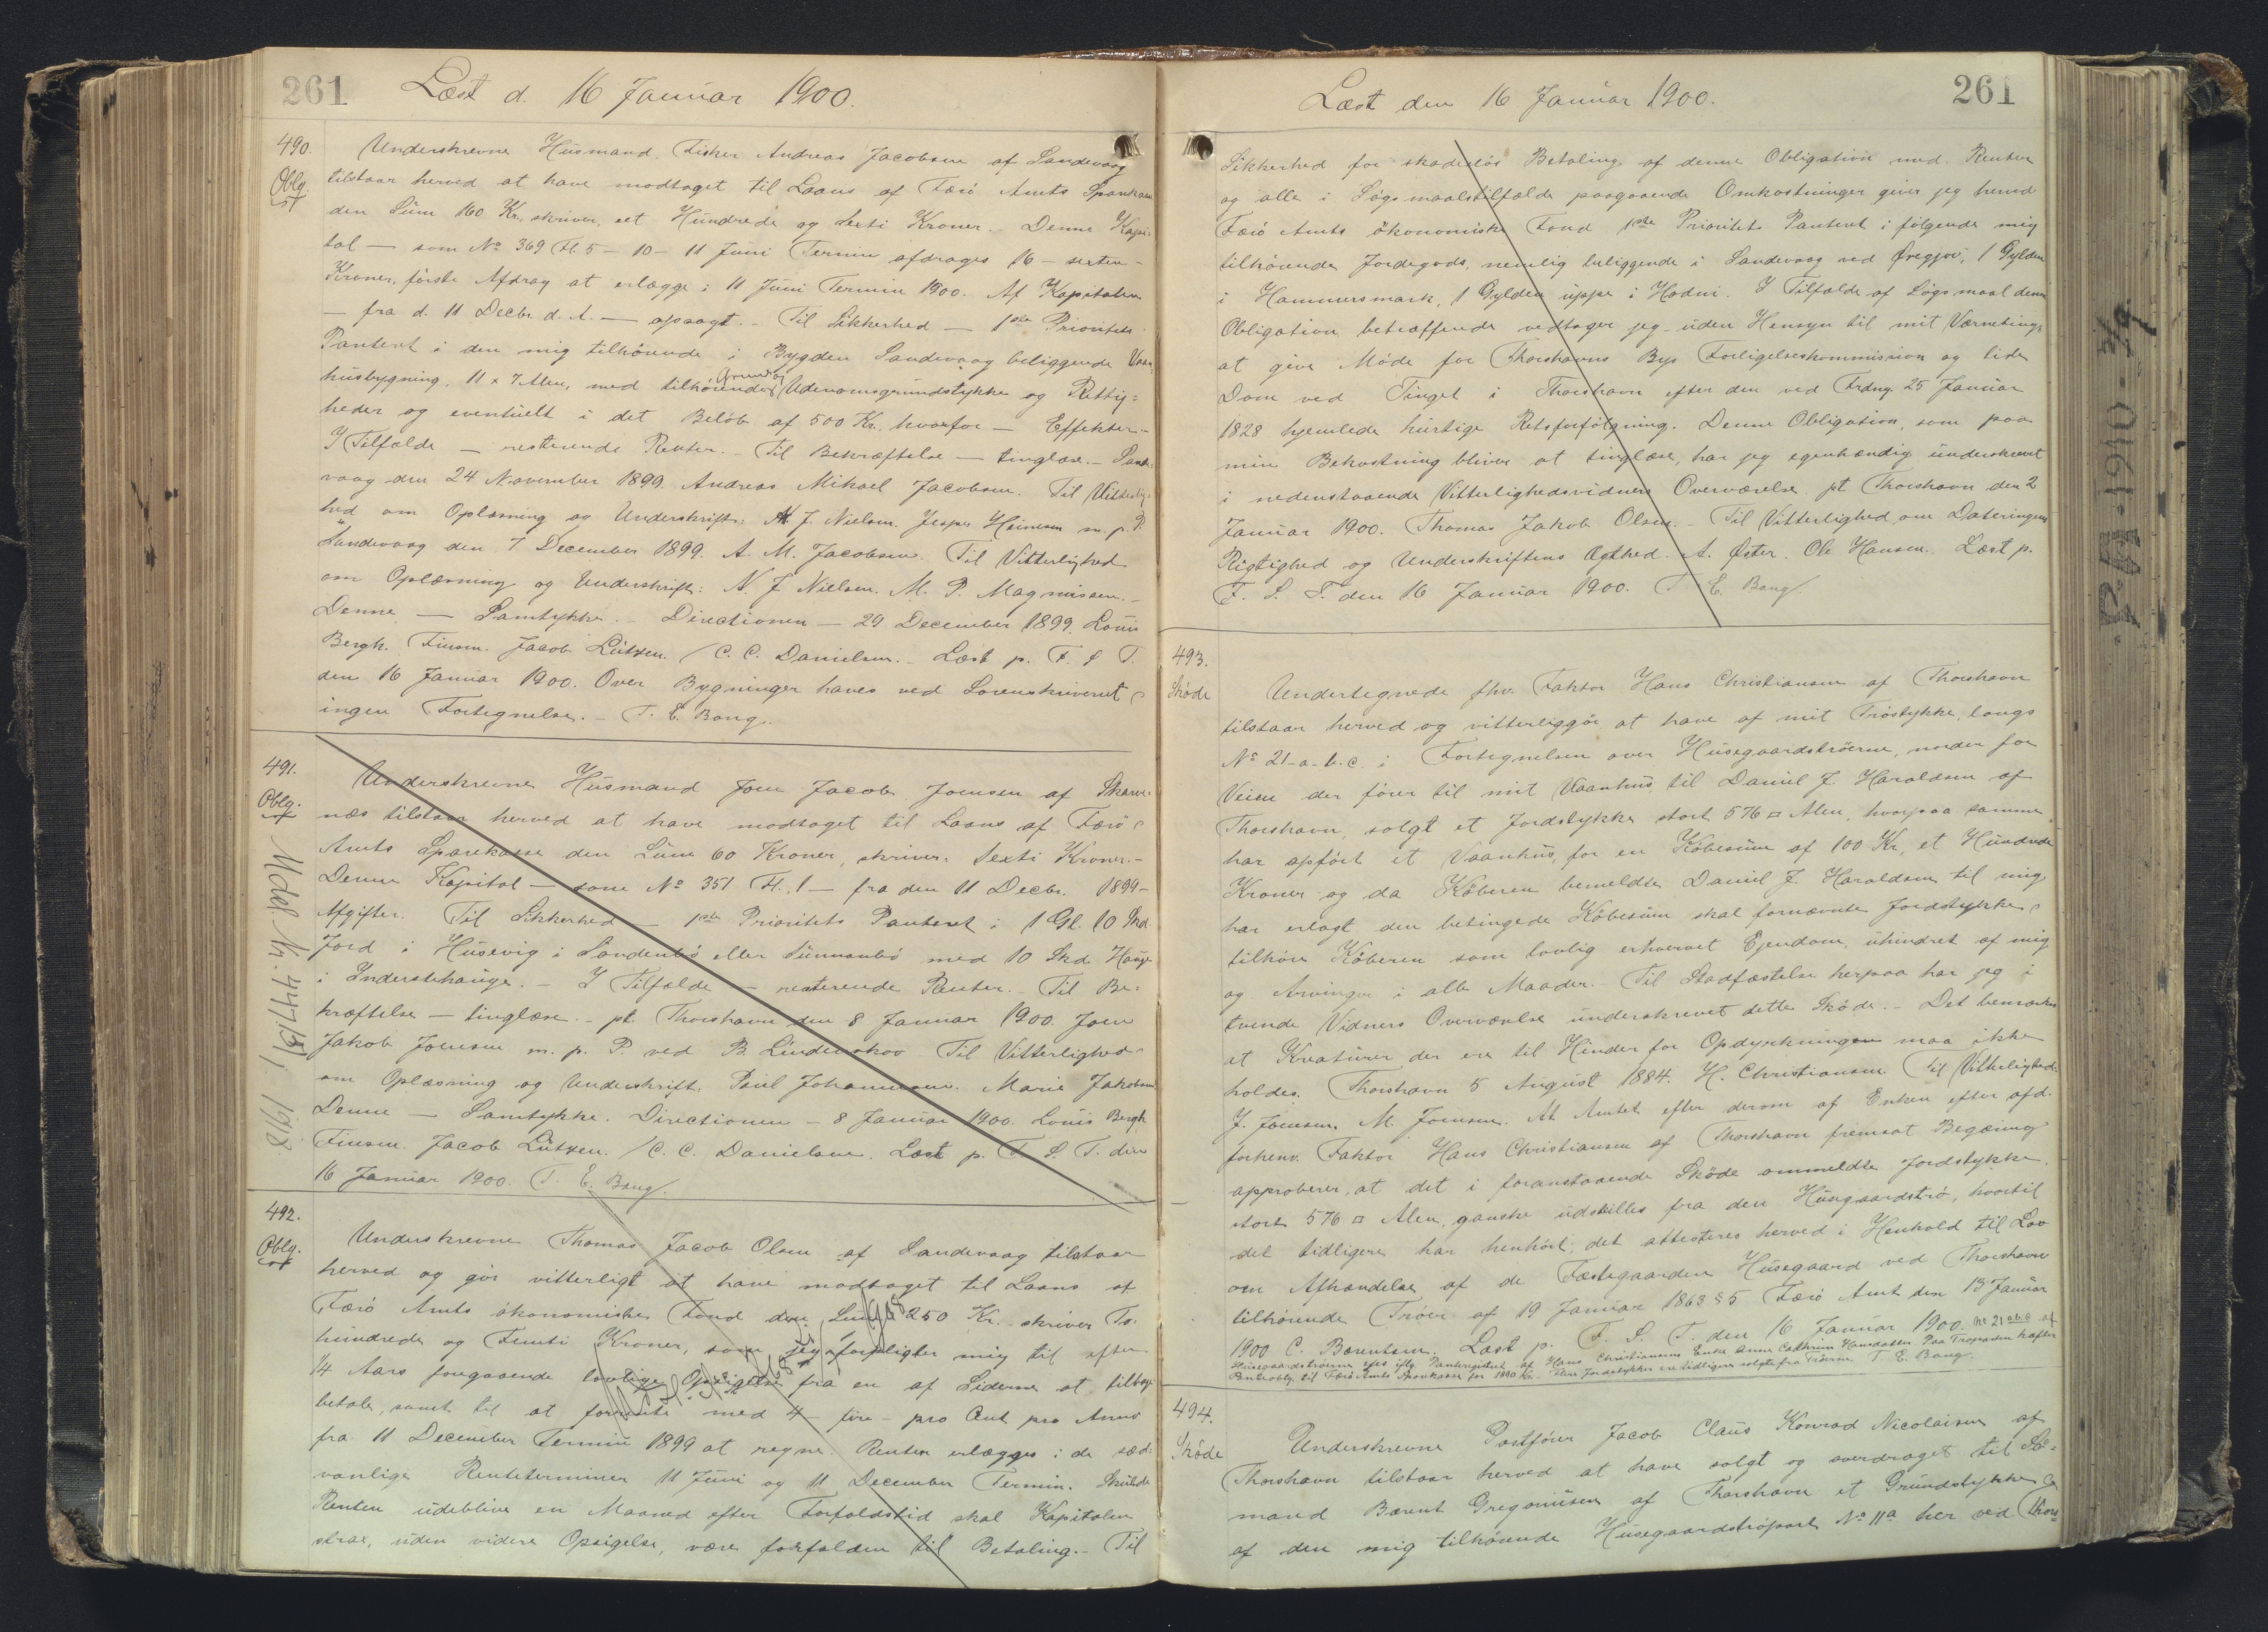 261
Læst d. 16 Januar 1900.
490.
Oblg.
Underskrevne Husmand, Fisker Andreas Jacobsen af Sandevaag
tilstaar herved at have modtaget til Laans af Færö Amts Sparekasse
den Sum 160 Kr. skriver eet Hundrede og Sexti Kroner. Denne Kapi-
tal — som No 369 H. 5 — 10 — 11 Juni Termin afdrages 16 — sexten —
Kroner, förste Afdrag at erlægge i 11 Juni Termin 1900. Af Kapitalen
— fra d. 11 Decbr. d. A. — opsagt. — Til Sikkerhed — 1ste Prioritets
Panteret i den mig tilhörende i Bygden Sandevaag beliggende Vaan-
husbygning, 11 x 7 Alen, med tilhörende Grund og Udenomsgrundstykke og Rettig=
heder og eventuelt i det Belöb af 500 Kr. hvorfor — Effekter —
I Tilfælde — resterende Renter. — Til Bekræftelse — tinglæse. — Sande-
vaag den 24 November 1899. Andreas Mikael Jacobsen. Til Vitterlig-
hed om Oplæsning og Underskrift: N. J. Nielsen. Jesper Heinesen m. p. P.
Sandevaag den 7 December 1899. A. M. Jacobsen. Til Vitterlighed
om Oplæsning og Underskrift: N. J. Nielsen. M. P. Magnussen. —
Denne — Samtykke. — Directionen — 29 December 1899. Louis
Bergh. Finsen. Jacob Lützen. / C. C. Danielsen. — Læst p. F. S. T.
den 16 Januar 1900. Over Bygninger haves ved Sorenskriveriet
ingen Fortegnelse. — T. E. Bang.
491.
Oblg.
Underskrevne Husmand Joen Jacob Joensen af Skarve-
næs tilstaar herved at have modtaget til Laans af Færö
Amts Sparekasse den Sum 60 Kroner, skriver Sexti Kroner. —
Denne Kapital — som No 351 H. 1 — fra den 11 Decbr. 1899 —
Afgifter. Til Sikkerhed — 1ste Prioritets Panteret i 1 Gl. 10 Skd.
Jord i Husevig i Sandenbö eller Sunnanbö med 10 Skd. Hauge
i Inderstehauge. — I Tilfælde — resterende Renter. — Til Be=
kræftelse — tinglæse. — pt. Thorshavn den 8 Januar 1900. Joen
Jakob Joensen m. p. P. ved B. Lindenskov. Til Vitterlighed
om Oplæsning og Underskrift. Poul Johannesen. Marie Jakobsen
Denne — Samtykke. Directionen — 8 Januar 1900. Louis Bergh
Finsen. Jacob Lützen. / C. C. Danielsen. Læst p. F. S. T. den
16 Januar 1900. T. E. Bang.
492.
Oblg.
Underskrevne Thomas Jacob Olsen af Sandevaag tilstaar
herved og gör vitterligt at have modtaget til Laans af
Færö Amts ökonomiske Fond den Sum 250 Kr. skriver To-
hundrede og Femti Kroner, som jeg forpligter mig til efter
1/4 Aars foregaaende lovlige Opsigelse fra en af Siderne at tilbage
betale, samt til at forrente med 4 — fire — pro Cent pro Anno
fra 11 December Termin 1899 at regne. Renten erlægges i de sæd-
vanlige Renteterminer 11 Juni og 11 December Termin. Skulde
Renten udeblive en Maaned efter Forfaldstid skal Kapitalen
strax, uden videre Opsigelse, være forfalden til Betaling. — Til
261
Læst den 16 Januar 1900.
Sikkerhed for skadeslös Betaling af denne Obligation med Renter
og alle i Sögsmaalstilfælde paagaaende Omkostninger giver jeg herved
Færö Amts ökonomiske Fond 1ste Prioritets Panteret i fölgende mig
tilhörende Jordegods, nemlig beliggende i Sandevaag ved Öregjov, 1 Gylden
i Hammersmark, 1 Gylden uppe i Hodni. I Tilfælde af Sögsmaal denne
Obligation betræffende vedtager jeg uden Hensyn til mit Værneting,
at give Möde for Thorshavns Byes Forligelseskommission og lide
Dom ved Tinget i Thorshavn efter den ved Frdng. 25 Januar
1828 hjemlede hurtige Retsforfölgning. Denne Obligation, som paa
min Bekostning bliver at tinglæse, har jeg egenhændig underskrevet
i nedenstaaende Vitterlighedsvidners Overværelse. pt. Thorshavn den 2
Januar 1900. Thomas Jakob Olsen. — Til Vitterlighed om Dateringens
Rigtighed og Underskriftens Ægthed. A. Öster. Ole Hansen. Læst p.
F. S. T. den 16 Januar 1900. T. E. Bang.
493.
Sköde
Undertegnede fhv. Faktor Hans Christiansen af Thorshavn
tilstaar herved og vitterliggör at have af mit Tröstykke, langs
No 21-a-b.c. i Fortegnelsen over Husegaardströerne, neden for
Veien der förer til mit Vaanhus til Daniel J. Haraldsen af
Thorshavn, solgt et Jordstykke stort 576 □ Alen, hvorpaa samme
har opfört et Vaanhus, for en Köbesum af 100 Kr, et Hundrede
Kroner og da Köberen bemeldte Daniel J. Haraldsen til mig
har erlagt den betingede Köbesum skal fornævnte Jordstykke
tilhöre Köberen som lovlig erhvervet Ejendom, uhindret af mig
og Arvinger i alle Maader. — Til Stadfæstelse herpaa har jeg i
tvende Vidners Overværelse underskrevet dette Sköde. — Det bemærkes
at Kreaturer der ere til Hinder for Opdyrkningen maa ikke
holdes. Thorshavn 5 August 1884. H. Christiansen. Til Vitterlighed:
J. Joensen. M. Joensen. At Amtet efter derom af Enken efter afd.
forhenv. Faktor Hans Christiansen af Thorshavn fremsat Begæring
approberer, at det i foranstaaende Sköde ommeldte Jordstykke
stort 576 □ Alen, ganske udskilles fra den Husegaardströ, hvortil
det tidligere har henhört, det attesteres herved i Henhold til Lov
om Afhændelse af de Fæstegaarden Husegaard ved Thorshavn
tilhörende Tröer af 19 Januar 1863 § 5. Færö Amt den 13 Januar
1900 C. Bærentsen. Læst p. F. S. T. den 16 Januar 1900. No 21 abc af
Husegaardströerne ejes iflg. Panteregistret af Hans Christiansens Enke Anne Cathrine Hansdatter. Paa Tröparten hæfter
Panteoblg. til Færö Amts Sparekasse for 1890 Kr. — Flere Jordstykker ere tidligere solgte fra Tröerne. T. E. Bang.
494.
Sköde
Underskrevne Postförer Jacob Claus Konrad Nicolaisen af
Thorshavn tilstaar herved at have solgt og overdraget til Sö=
mand Bærent Gregoriussen af Thorshavn et Grundstykke
af den mig tilhörende Husegaardströpart No 11a her ved Thors=